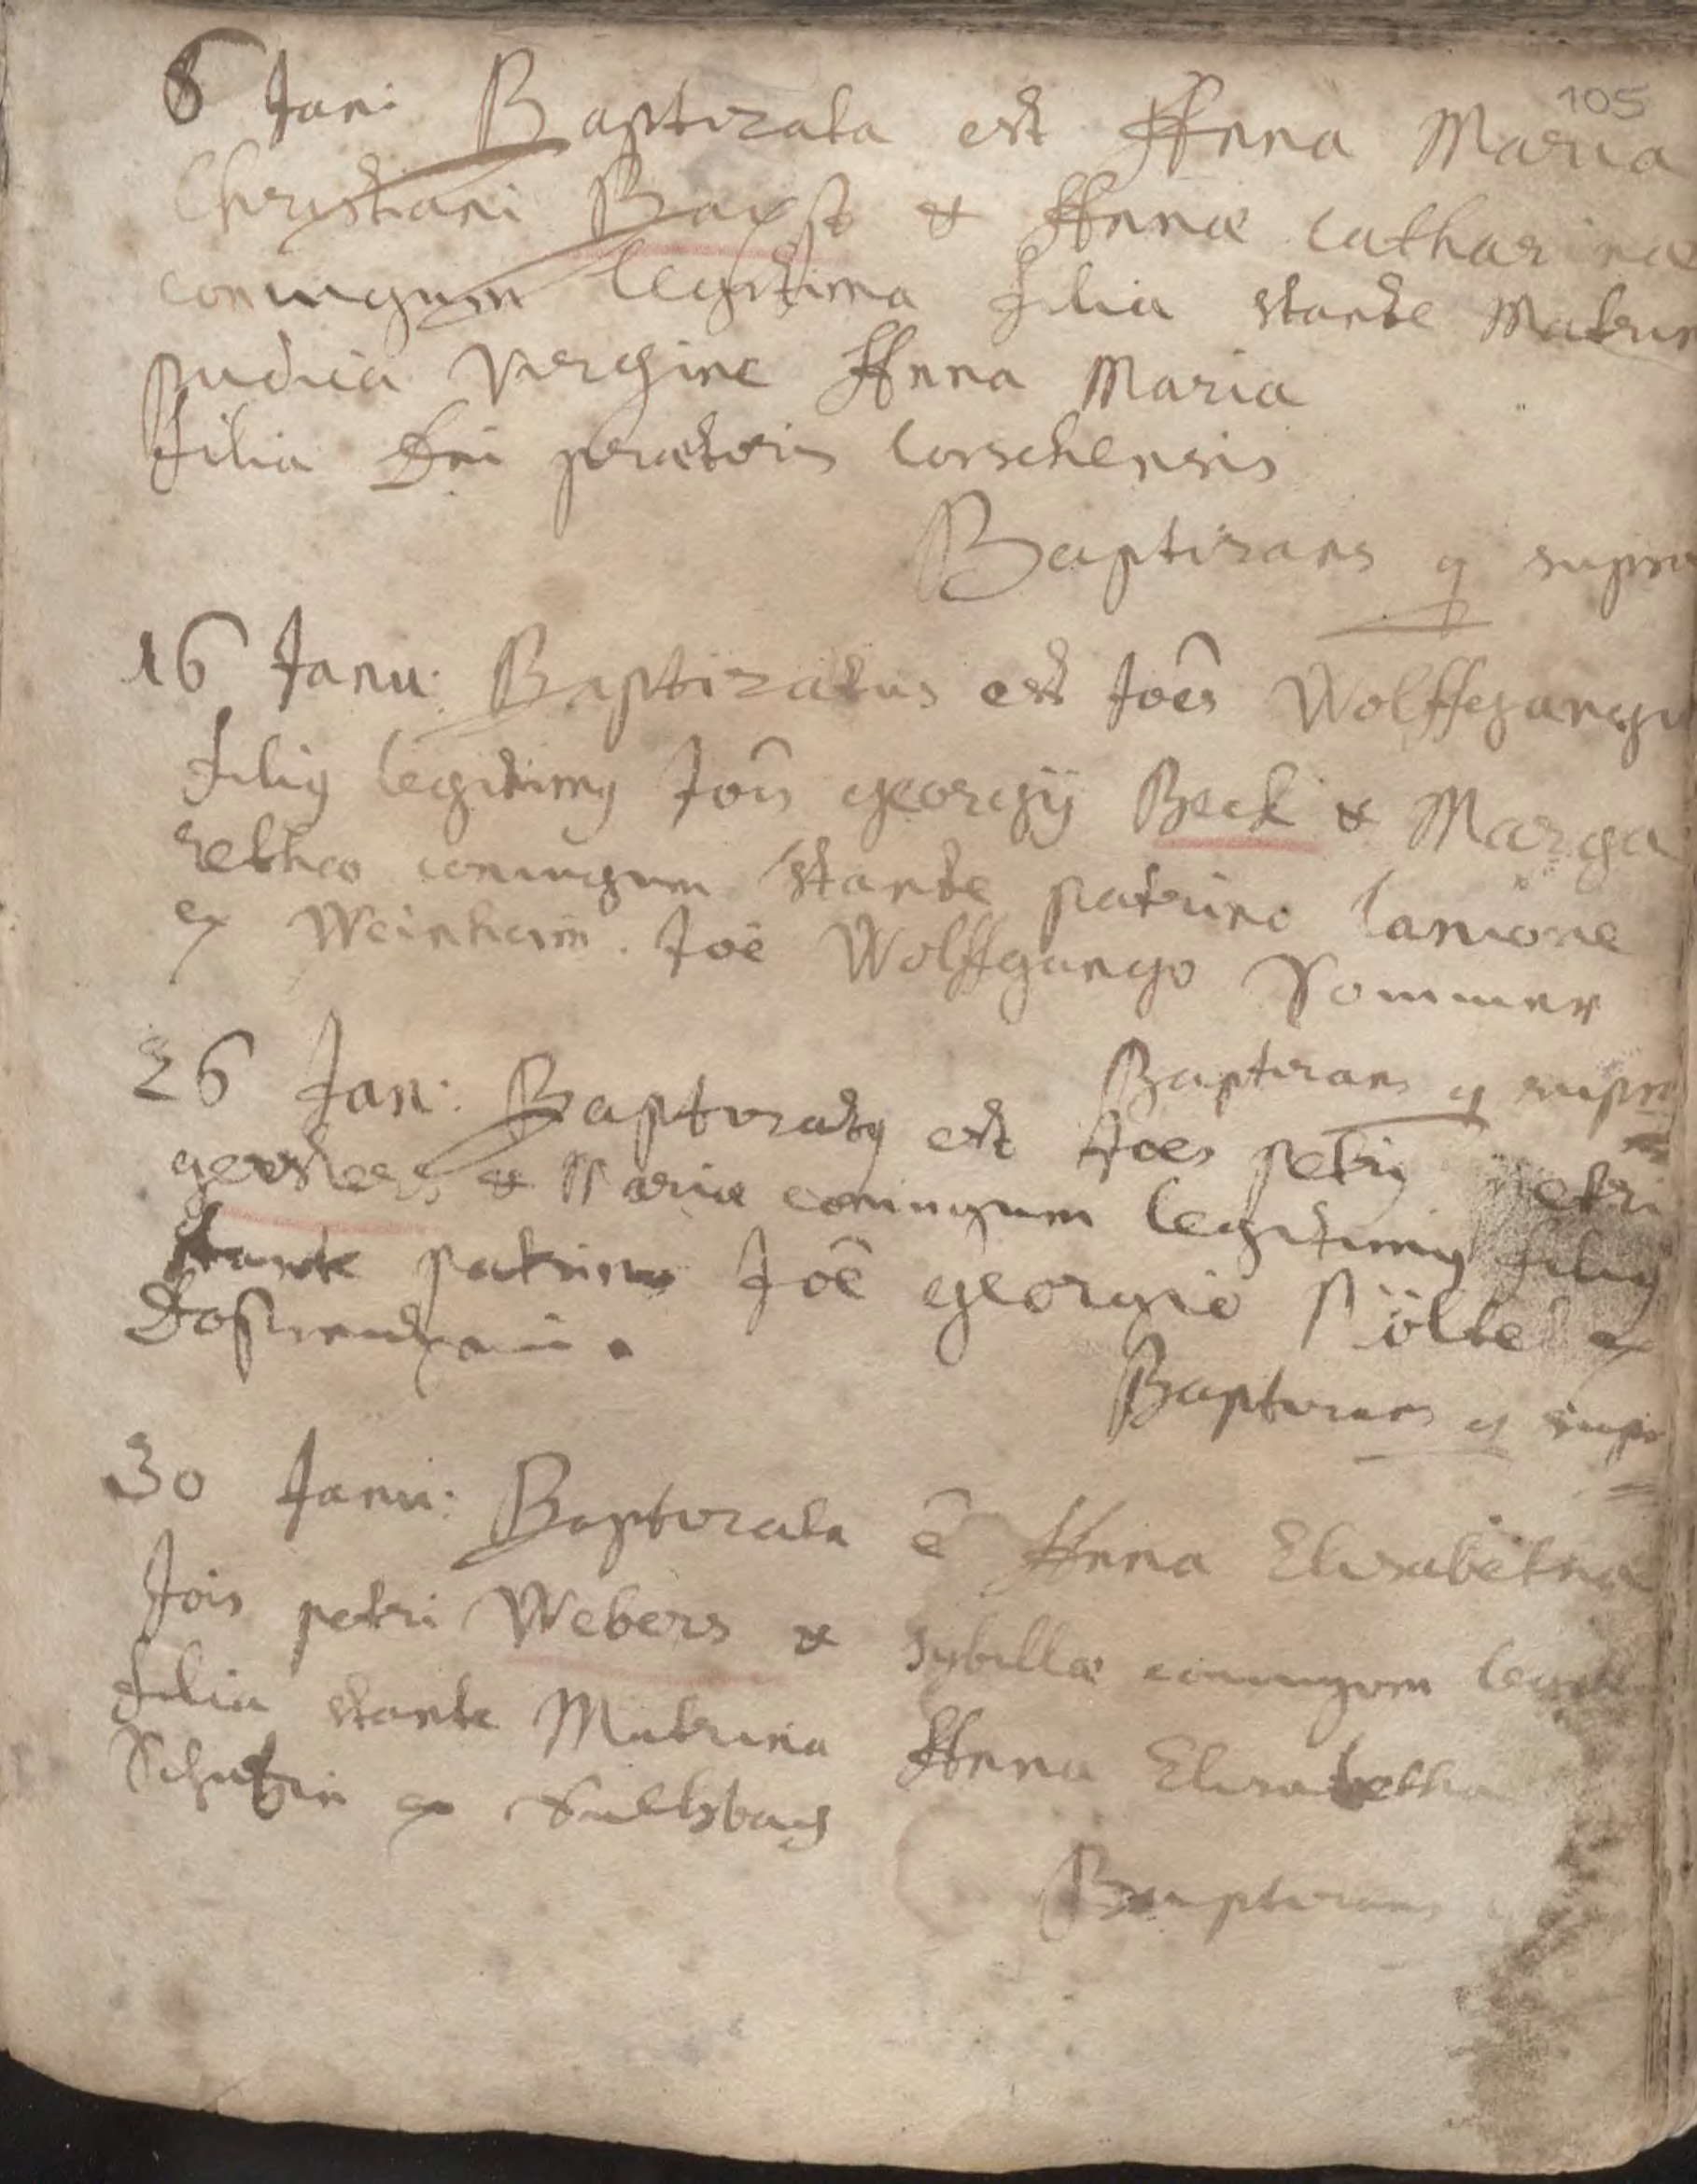 105
6 Jani Baptizata est Anna Maria
Christiani Baxst & Annæ Catharinæ
coniugum legitima filia stante Matrin
pudica virgine Anna Maria
filia Dni prætoris Lorschensis
Baptizans q supra
16 Janu: Baptizatus est Joes Wolffgangu
filiq legitimq Jois georgij Beck & Marga
rethæ coniugum stante patrino lanione
ex Weinheim. Joe Wolffgango Sommer
Baptizans q supra
26 Jan: Baptizatq est Joes petrq petri
& Mariæ coniugum legitimq filiq
stante patrino Joe georgio ex
Baptizans q supr
30 Janu: Baptizata ē Anna Elisabetha
Jois petri Webers & Sybillæ coniugum legit
filia stante Matrina Anna Elisabetha
Schützin ex Sultzbach
Baptizans